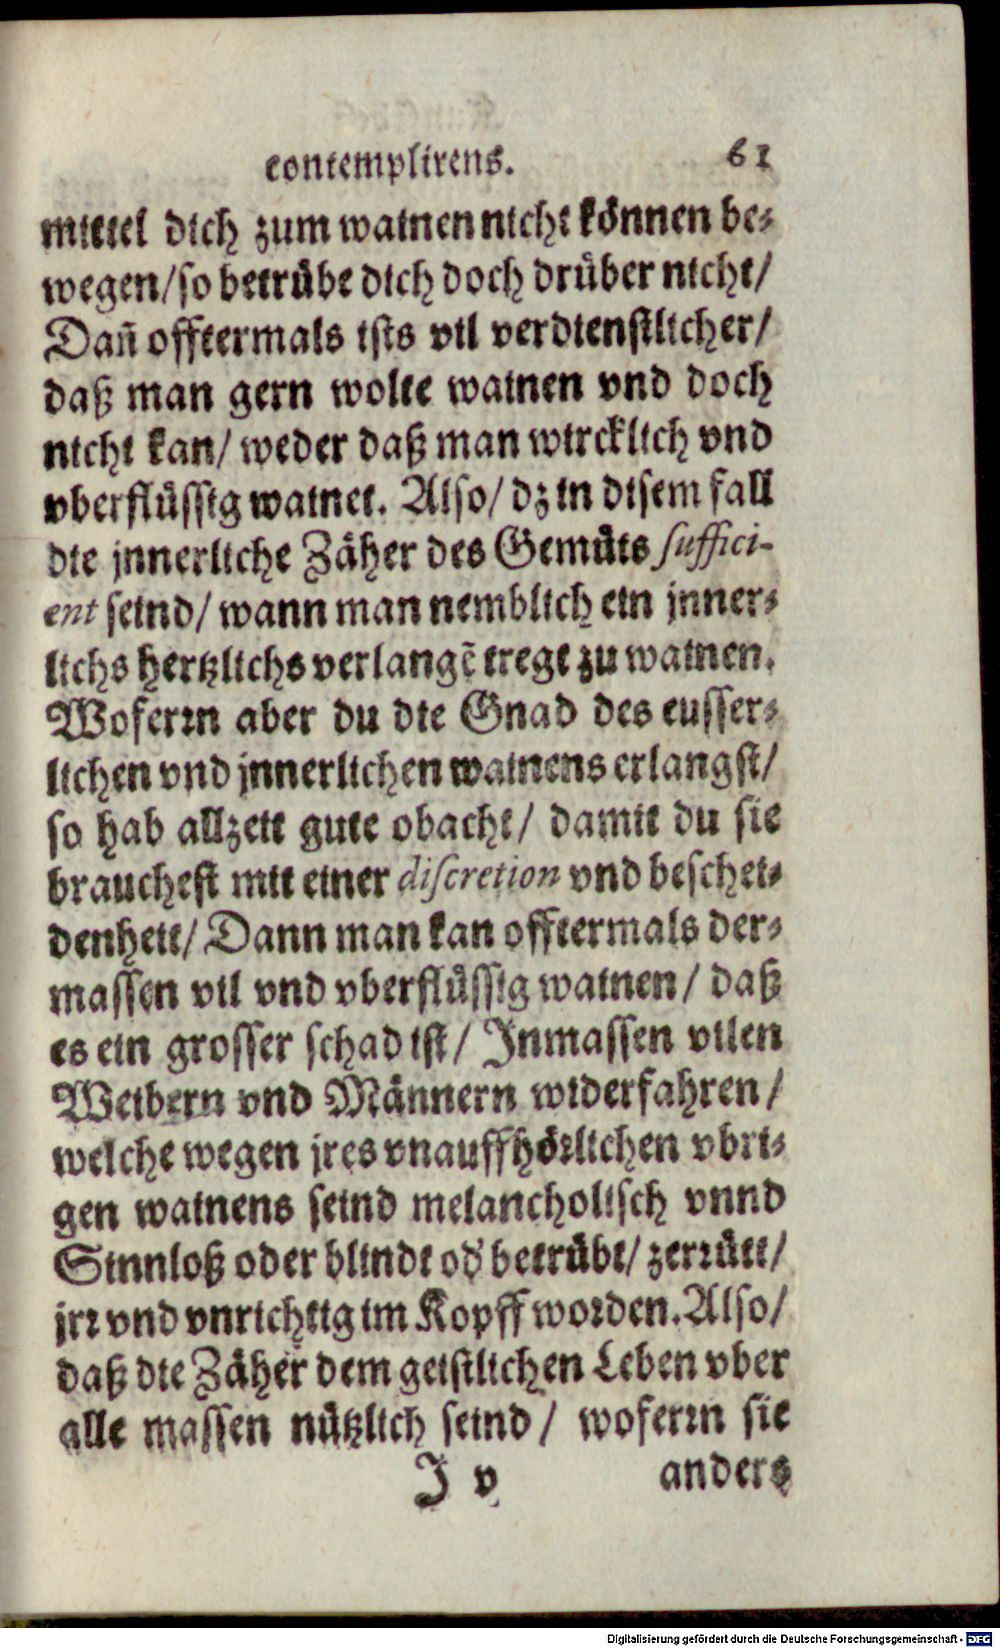 contemplirens. 61
mittel dich zum wainen nicht können be-
wegen/so betrübe dich doch drüber nicht/
Dañ offtermals ists vil verdienstlicher/
daß man gern wolte wainen vnd doch
nicht kan/ weder daß man wircklich vnd
vberflüssig wainet. Also/ dz in disem fall
die jnnerliche Zäher des Gemüts suffici-
ent seind/ wann man nemblich ein jnner-
lichs hertzlichs verlangẽ tregt zu wainen.
Woferrn aber du die Gnad des eusser-
lichen vnd jnnerlichen wainens erlangst/
so hab allzeit gute obacht/ damit du sie
brauchest mit einer discretion vnd beschei-
denheit/ Dann man kan offtermals der-
massen vil vnd vberflüssig wainen/ daß
es ein grosser schad ist/ Inmassen vilen
Weibern vnd Männern widerfahren/
welche wegen jres vnauffhörlichen vbri-
gen wainens seind melancholisch vnnd
Sinnloß oder blindt od' betrübt/ zerrütt/
jrr vnd vnrichtig im Kopff worden. Also/
daß die Zäher dem geistlichen Leben vber
alle massen nützlich seind/ woferrn sie
J v anders
Digitalisierung gefördert durch die Deutsche Forschungsgemeinschaft - DFG